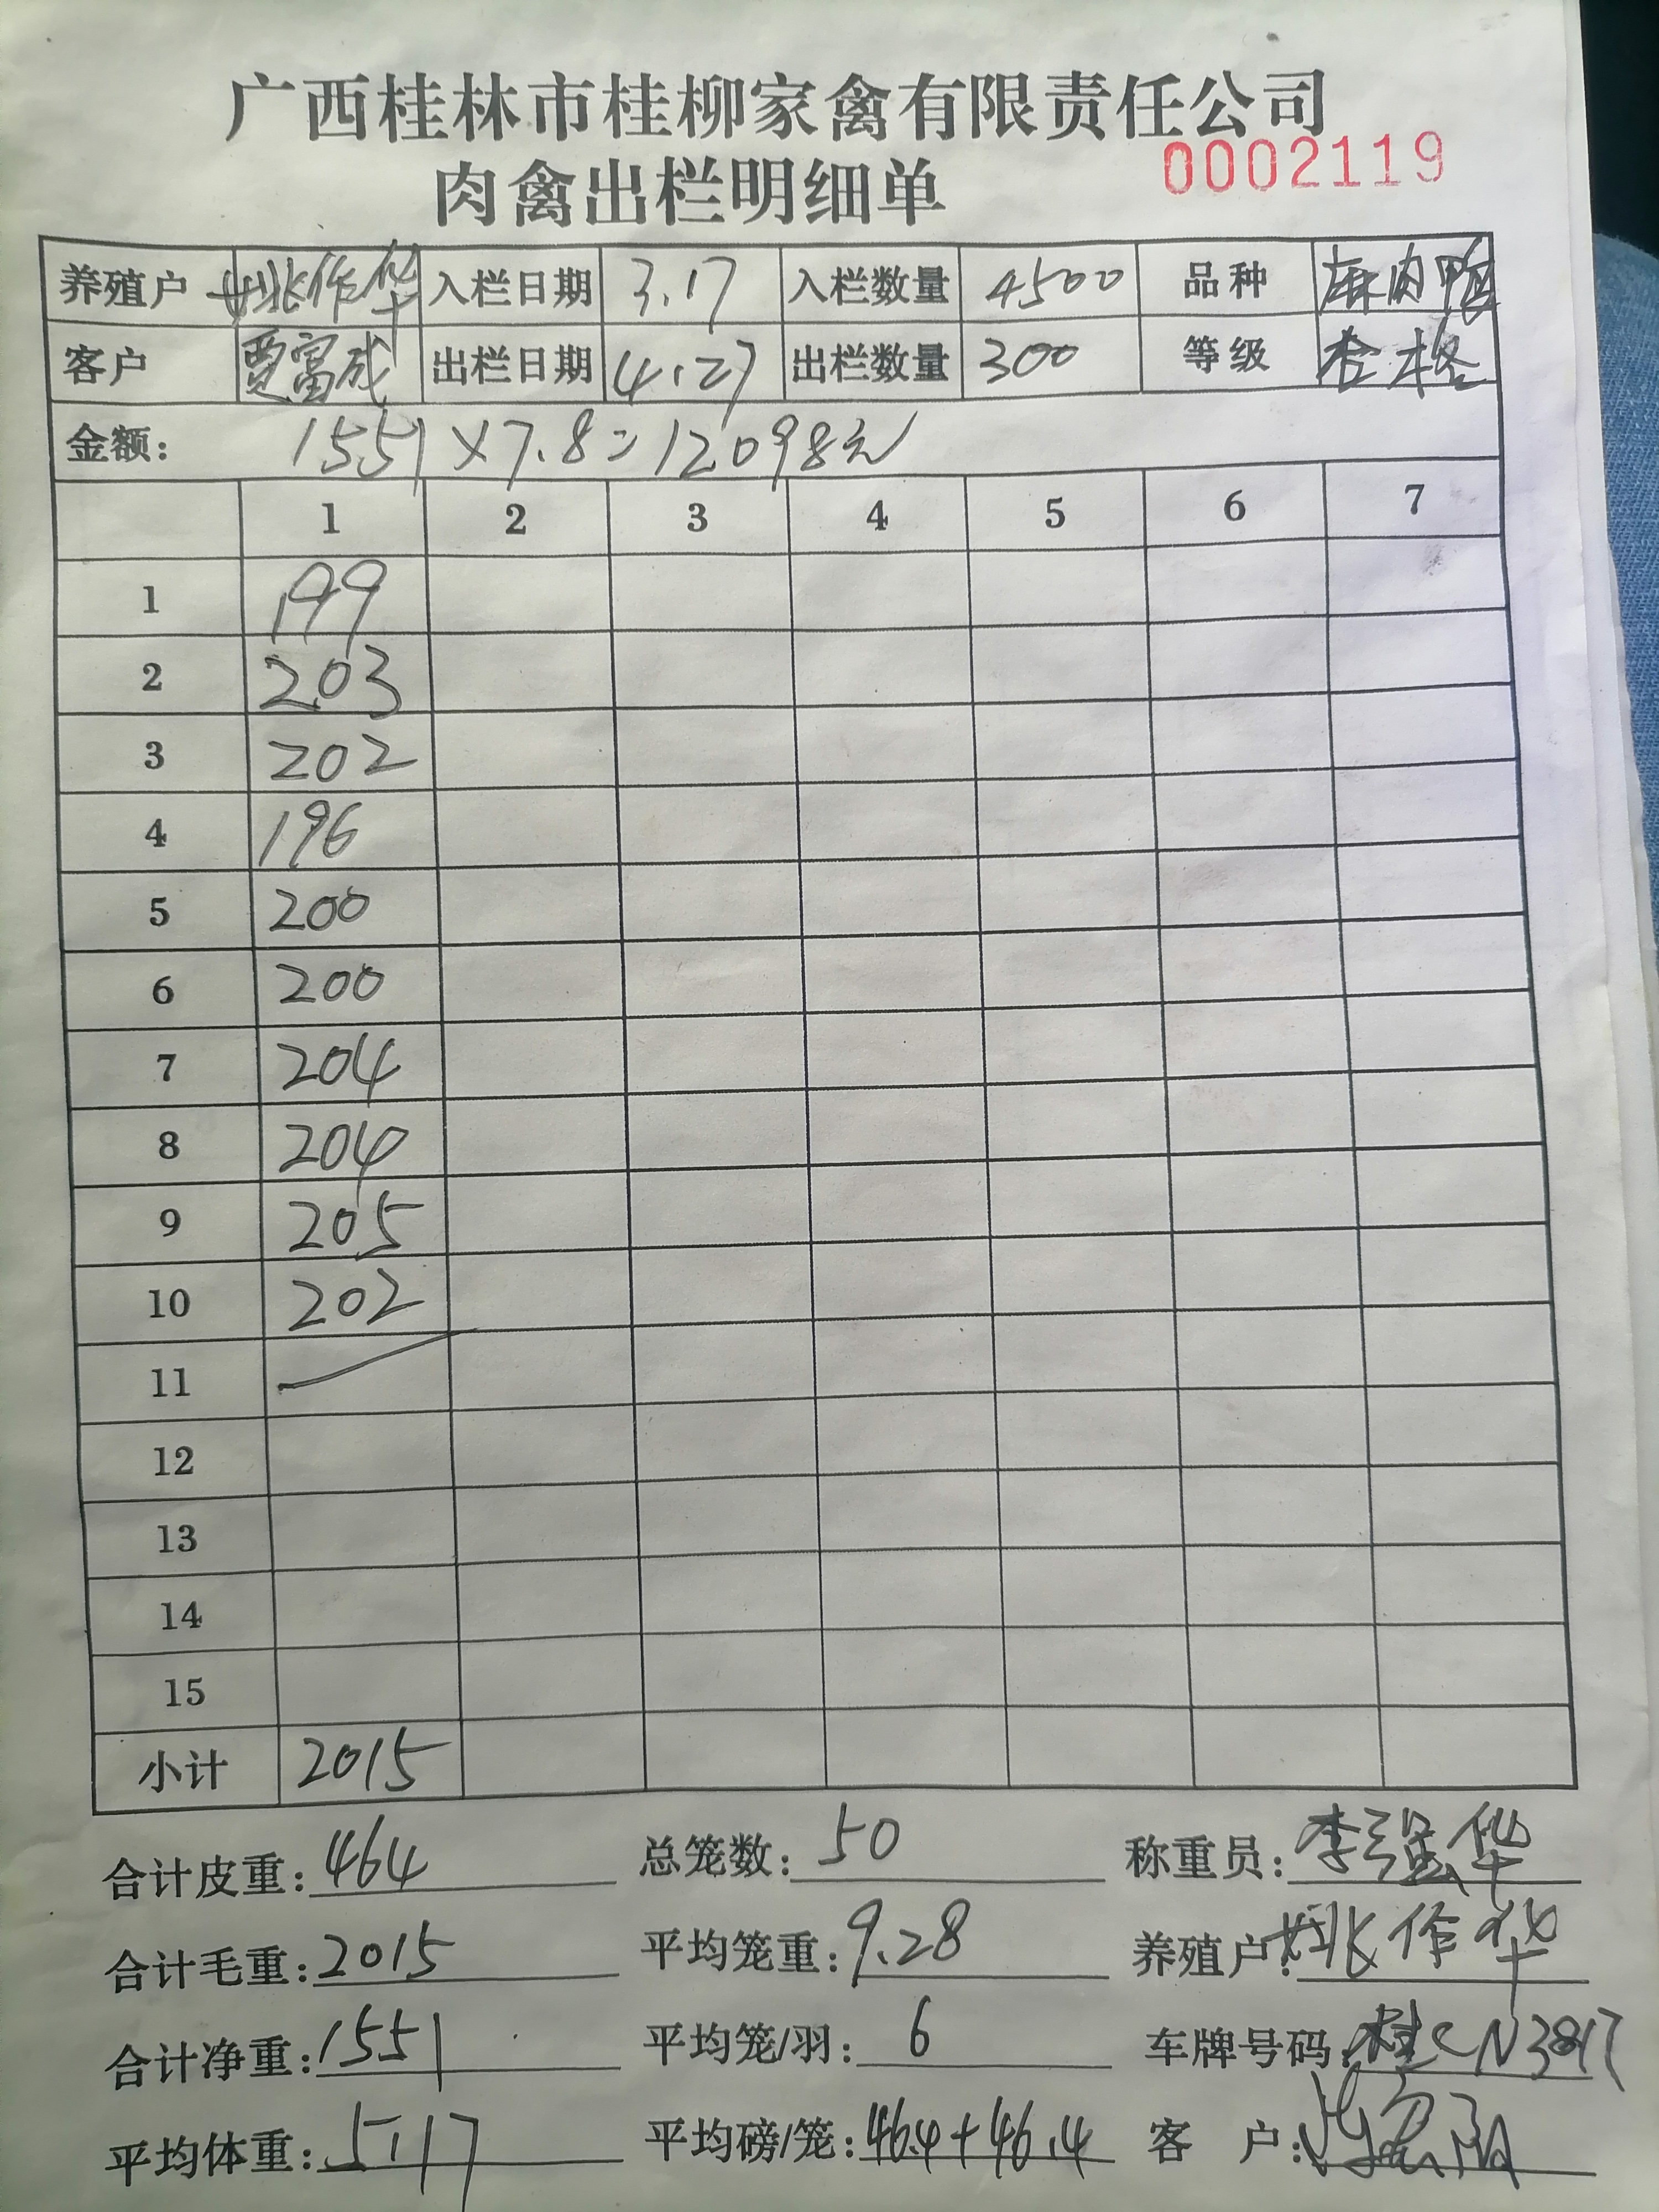 广西桂林市桂柳家禽有限责任公司
肉禽出栏明细单 0002119
养殖户 姚作华 入栏日期 3.17 入栏数量 4500 品种 麻肉鸭
客户 贾富成 出栏日期 4.27 出栏数量 300 等级 合格
金额: 1551×7.8=12098元
1 2 3 4 5 6 7
1 199
2 203
3 202
4 196
5 200
6 200
7 204
8 204
9 205
10 202
11
12
13
14
15
小计 2015
合计皮重: 464 总笼数: 50 称重员: 李强华
合计毛重: 2015 平均笼重: 9.28 养殖户: 姚作华
合计净重: 1551 平均笼/羽: 6 车牌号码: 桂CN3817
平均体重: 5.17 平均磅/笼: 46.4+46.4 客户: